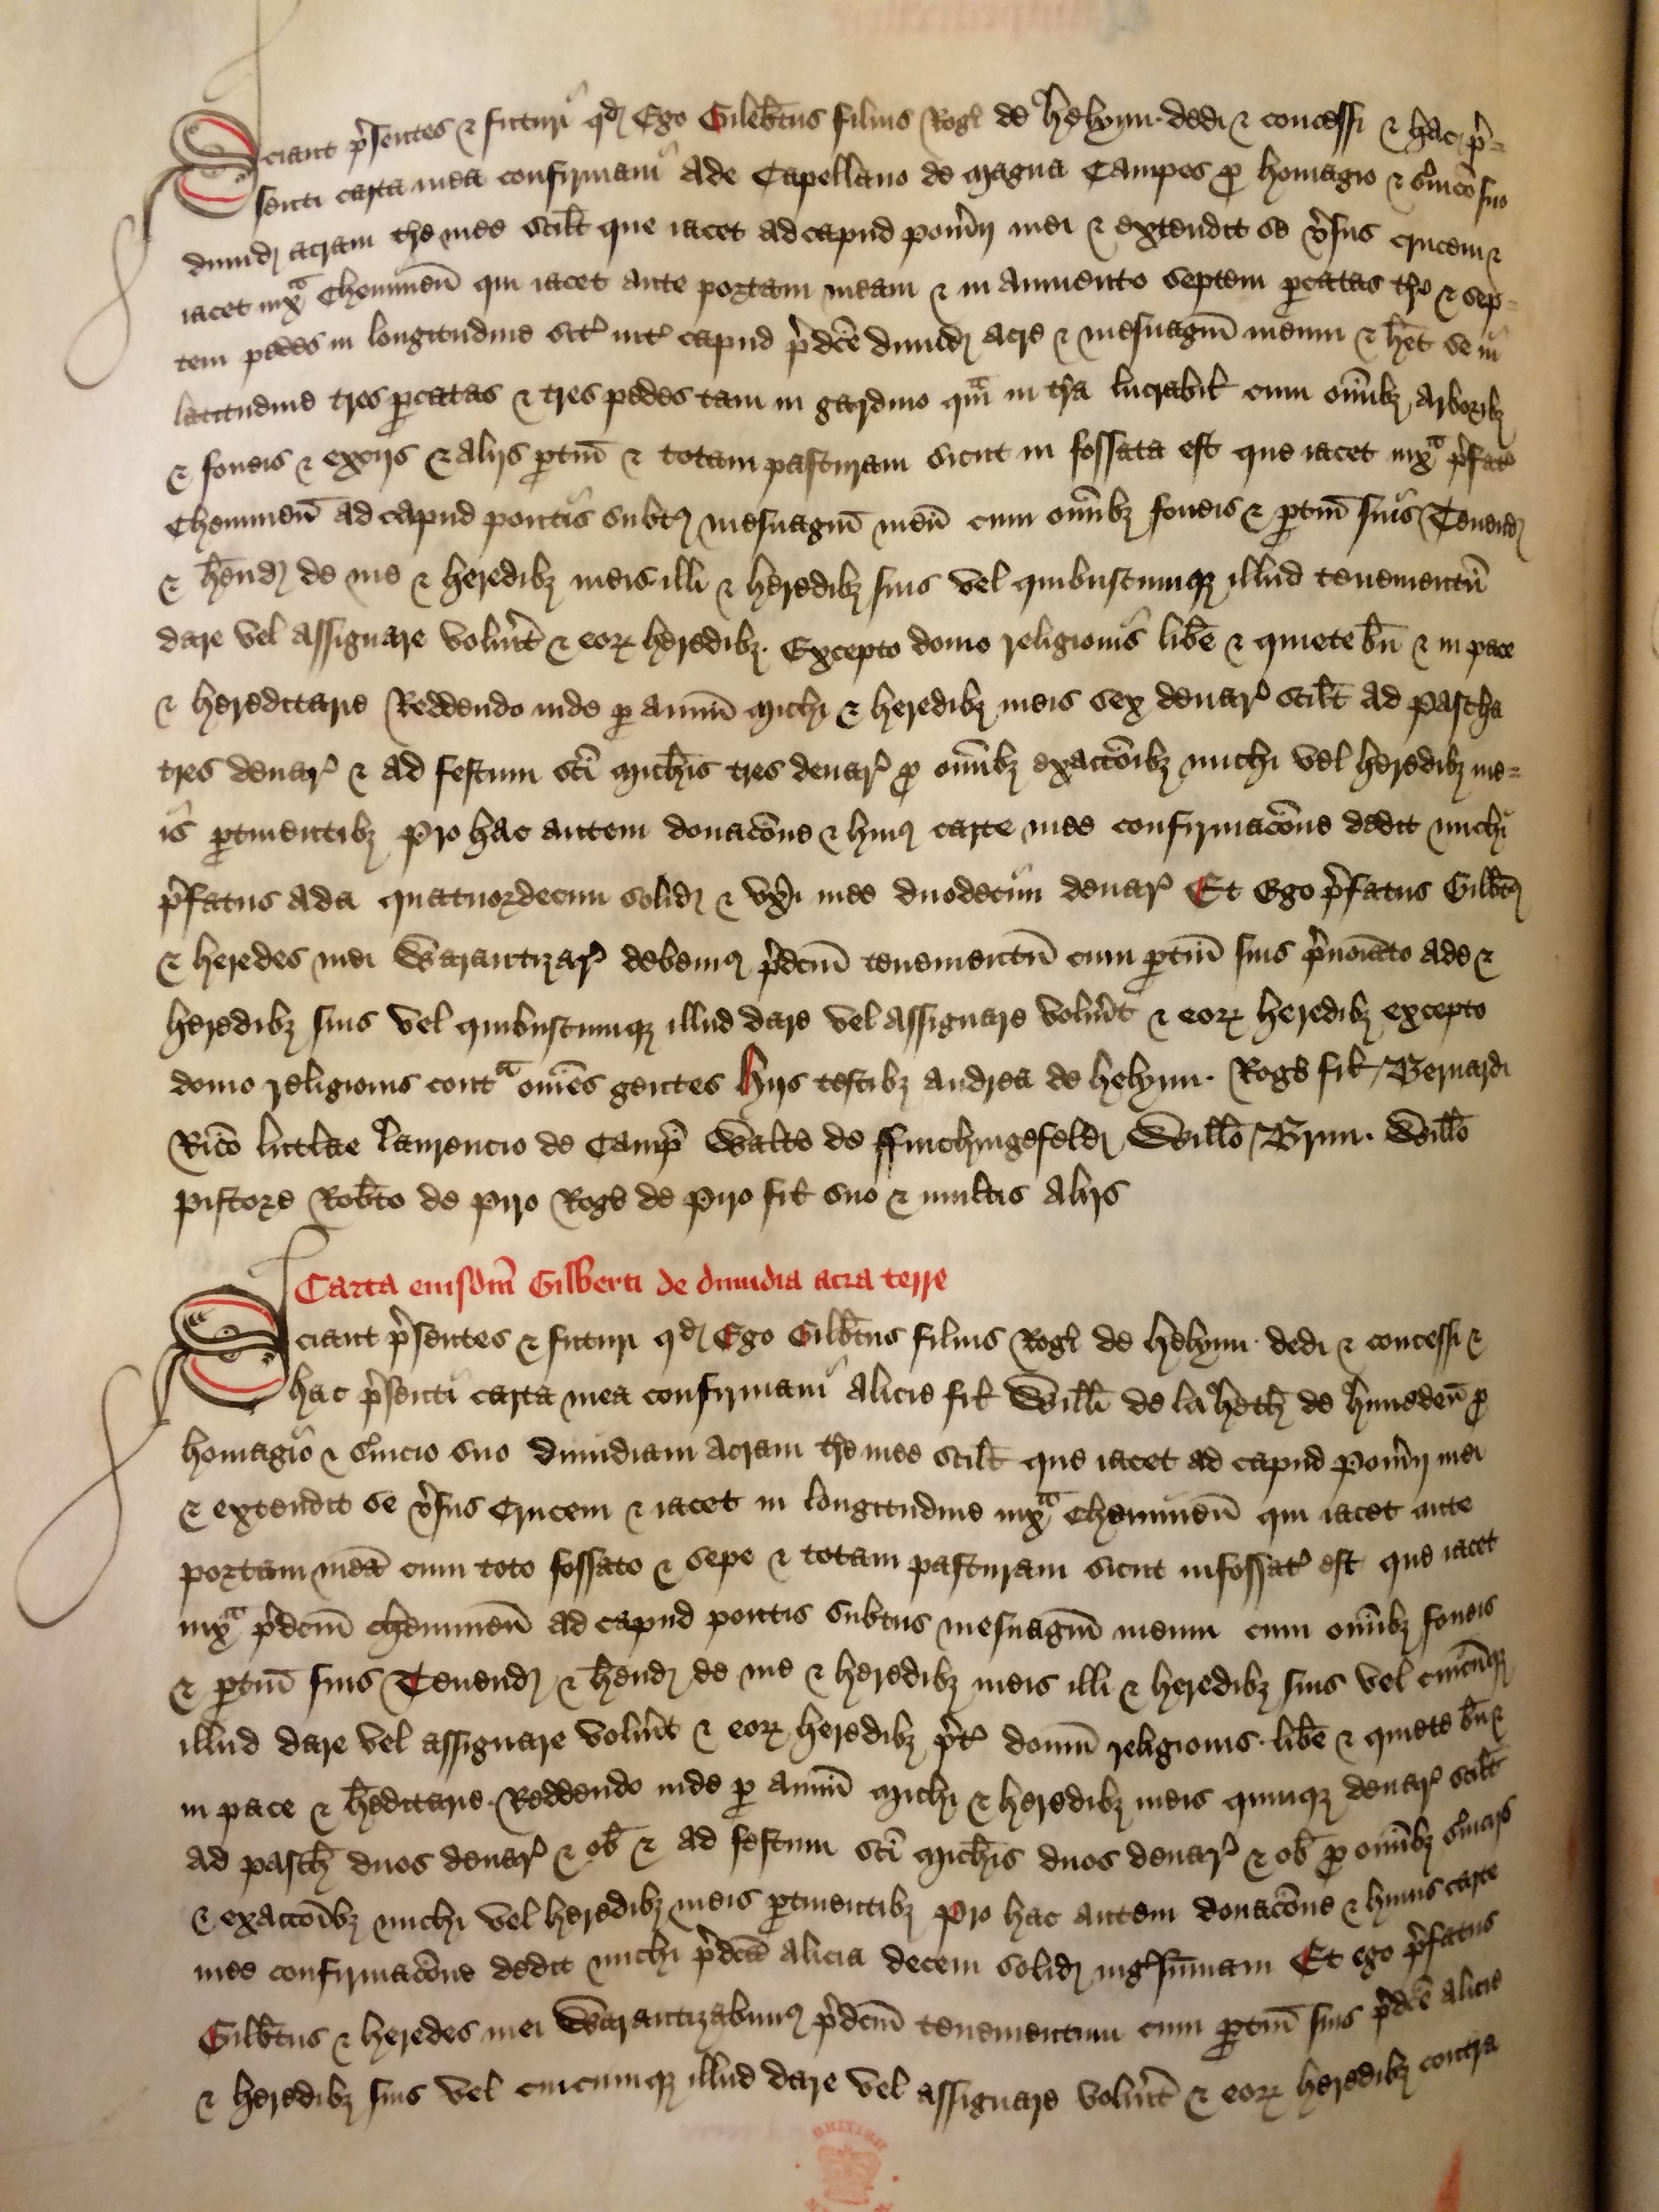 Sciant p̄sentes ⁊ futuri qd̄ Ego Gilebt̄us filius Rogi de Helyun · dedi ⁊ concessi ⁊ hac p̄=
senti carta mea confirmaui Ade Capellano de magna Campes p homagio ⁊ s̄uicio suo
dimid̄ acram tr̄e mee scilt̄ que iacet ad capud pom̄ij mei ⁊ extendit se v̄sus crucem ⁊
iacet iuxᵃ Cheminen̄ qui iacet ante portam meam ⁊ in aumento septem p̄catas tr̄e ⁊ sep=
tem pedes in longitudine sc̄t int̄ capud p̄dc̄e dimid̄ acre ⁊ mesuagiū meum ⁊ h̄et se in
latitudine tres p̄catas ⁊ tres pedes tam in gardino qᵃm in tr̄a lucrabil̄ cum om̄ibȝ arboribȝ
⁊ foueis ⁊ exijs ⁊ alijs ptin̄ ⁊ totam pasturam sicut in fossata est que iacet iuxᵃ p̄fato
Cheminen̄ ad capud pontis subtꝰ mesuagiū meū cum om̄ibȝ foueis ⁊ ptin̄ suis Tenend̄
⁊ h̄end̄ de me ⁊ heredibȝ meis illi ⁊ heredibȝ suis vel quibuscumqȝ illud tenementū
dare vel assignare volūit ⁊ eoꝝ heredibȝ. Excepto domo religionis lib̄e ⁊ quiete bn̄ ⁊ in pace
⁊ hereditarie Reddendo inde p annū michi ⁊ heredibȝ meis sex denar̄ scilt̄ ad pascha
tres denar̄ ⁊ ad festum sc̄i mich̄is tres denar̄ p om̄ibȝ exacc̄oibȝ michi vel heredibȝ me=
is ptinentibȝ Pro hac autem donac̄one ⁊ huiꝰ carte mee confirmac̄one dedit michi
p̄fatus Ada quatuordecim solid̄ ⁊ vx̄i mee duodecim denar̄ Et Ego p̄fatus Gilb̄tꝰ
⁊ heredes mei Warantizar̄ debemꝰ p̄dcm̄ tenementū cum ptin̄ suis p̄noiāto Ade ⁊
heredibȝ suis vel quibuscumqȝ illud dare vel assignare volūit ⁊ eoꝝ heredibȝ excepto
domo religionis contᵃ om̄es gentes Hijs testibȝ Andrea de Helyun · Roḡo fil̄ Bernardi
Ric̄o littlae Laurencio de Camp̄ Walt̄o de ffinchingefeld̄ Willō Brun · Willō
pistore Rob̄to de piro Roḡo de piro fil̄ suo ⁊ multis alijs
Carta eiusdm̄ Gilberti de dimidia acra terre
Sciant p̄sentes ⁊ futuri qd̄ Ego Gilb̄tus filius Rogi de Helyun · dedi ⁊ concessi ⁊
hac p̄senti carta mea confirmaui Alicie fil̄ Willī de la Heth̄ de Huneden̄ p
homagio ⁊ s̄uicio suo dimidiam acram tr̄e mee scilt̄ que iacet ad capud pom̄ij mei
⁊ extendit se v̄sus Crucem ⁊ iacet in longitudine iuxᵃ Cheminen̄ qui iacet ante
portam meā cum toto fossato ⁊ sepe ⁊ totam pasturam sicut infossat̄ est que iacet
iuxᵃ p̄dcm̄ cheminen̄ ad capud pontis subtus mesuagiū meum cum om̄ibȝ foueis
⁊ ptin̄ suis Tenend̄ ⁊ h̄end̄ de me ⁊ heredibȝ meis illi ⁊ heredibȝ suis vel cuicūqȝ
illud dare vel assignare volūit ⁊ eoꝝ heredibȝ p̄t̄ domū religionis · lib̄e ⁊ quiete bn̄ ⁊
in pace ⁊ h̄editarie · Reddendo inde p annū michi ⁊ heredibȝ meis quinqȝ denar̄ scilt̄
ad pasch̄ duos denar̄ ⁊ ob̄ ⁊ ad festum sc̄i mich̄is duos denar̄ ⁊ ob̄ p om̄ibȝ s̄uicijs
⁊ exacc̄oibȝ michi vel heredibȝ meis ptinentibȝ Pro hac autem donac̄one ⁊ huius carte
mee confirmac̄one dedit michi p̄dcā Alicia decem solid̄ Et ego p̄fatus
Gilb̄tus ⁊ heredes mei Warantizabimꝰ p̄dcm̄ tenementum cum ptin̄ suis p̄dc̄e Alicie
⁊ heredibȝ suis vel cuicumqȝ illud dare vel assignare volūit ⁊ eoꝝ heredibȝ contra
BRITISH